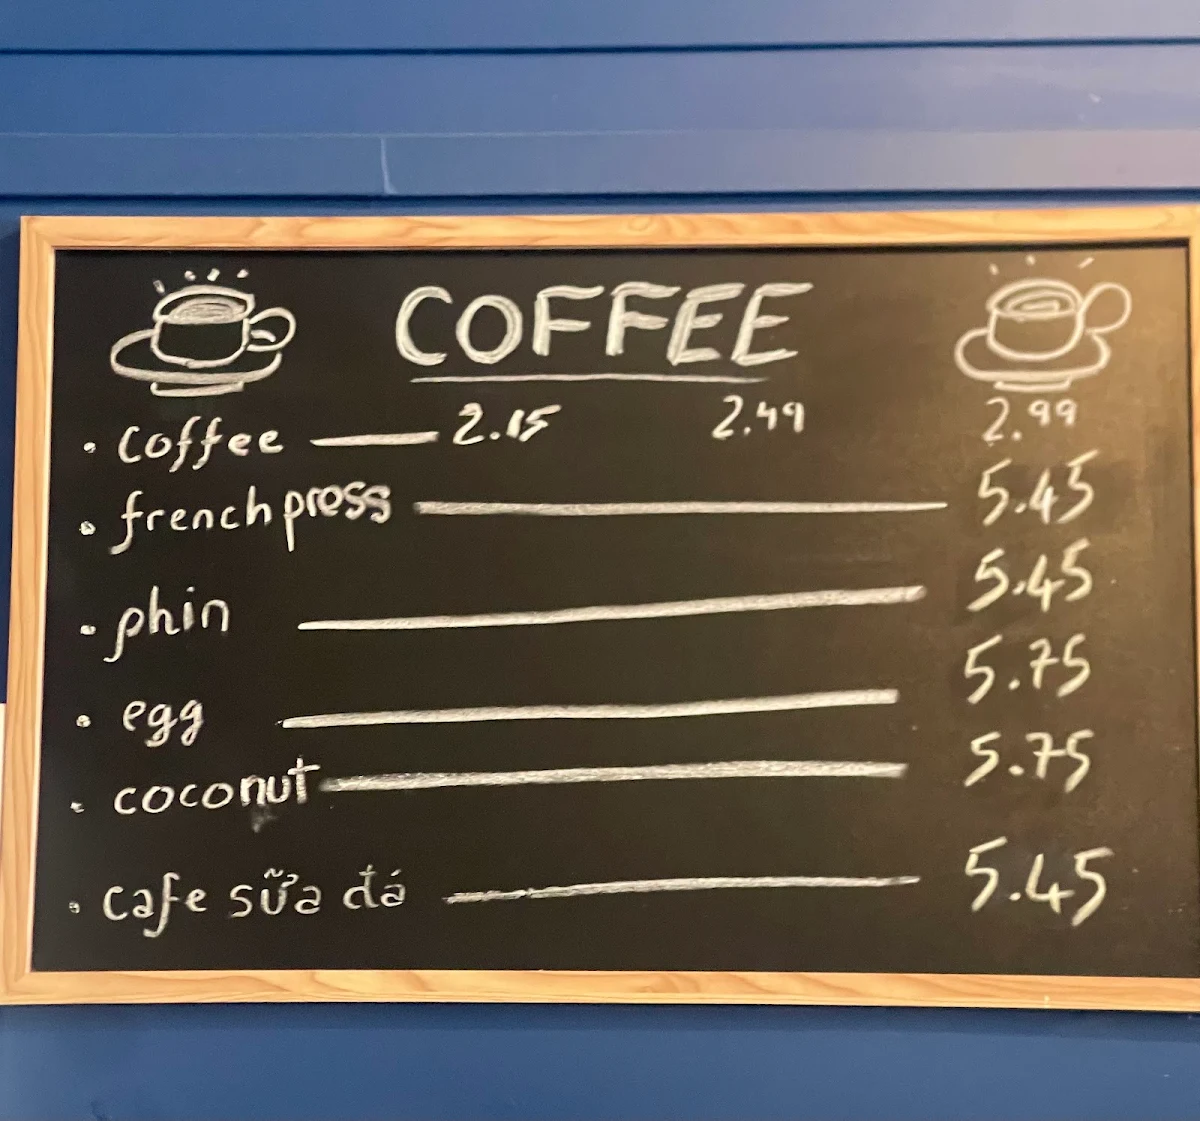 COFFEE
• coffee — 2.15 2.49 2.99
• french press — 5.45
• phin — 5.45
• egg — 5.75
• coconut — 5.75
• cafe sữa đá — 5.45